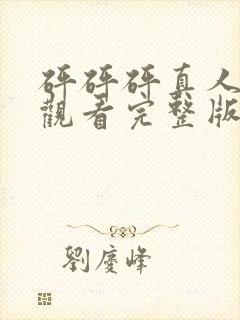 砰砰砰真人
觀看完整版
劉慶峰